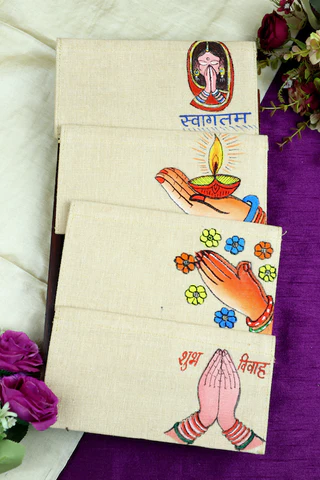 स्वागतम
शुभ विवाह